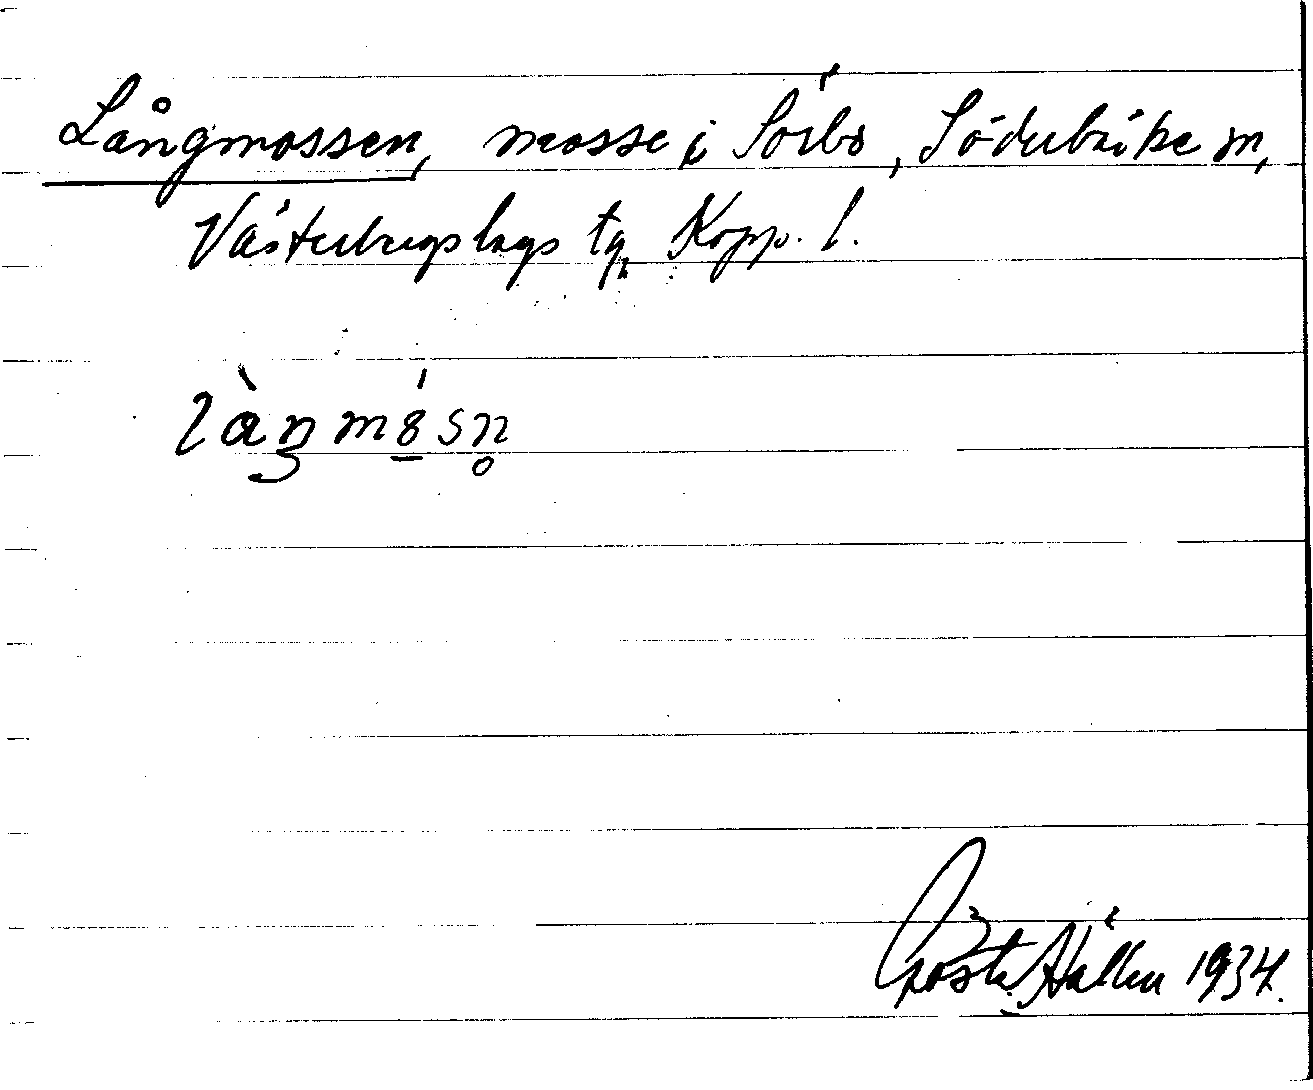 Långmossen, mosse i Sörbo, Söderbärke sn,
Västerbergslags tg, Kopp. l.
làŋmósn̥
Gösta Hállen 1934.